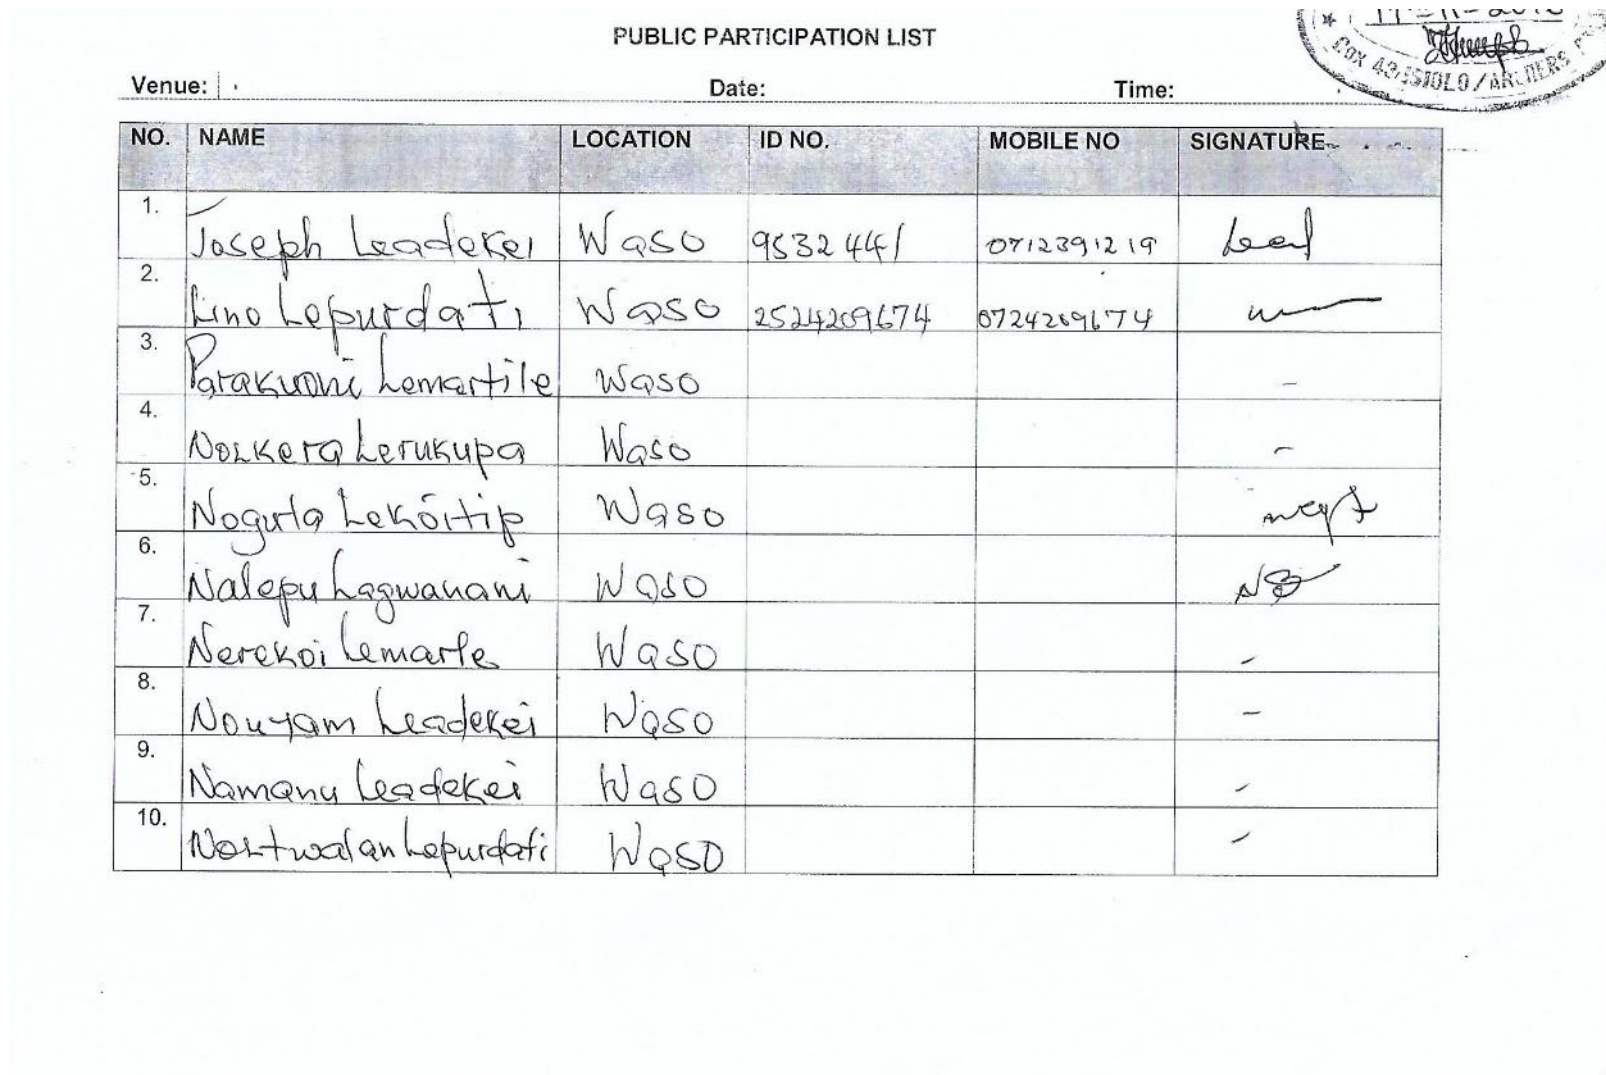 PUBLIC PARTICIPATION LIST
Venue: Date: Time:
BOX 43, ISIOLO / ARCHERS
NO. NAME LOCATION ID NO. MOBILE NO SIGNATURE
1. Joseph Leadekei Waso 9532441 0712391219
2. Lino Lepurdati Waso 2524209674 0724209674
3. Parakuoni Lemartile Waso -
4. Nolkera Lerukupa Waso -
5. Noguta Lekoitip Waso
6. Nalepu Lagwanani Waso
7. Nerekoi Lemarle Waso -
8. Nouyam Leadekei Waso -
9. Namanu Leadekei Waso -
10. Noltwalan Lepurdati Waso -